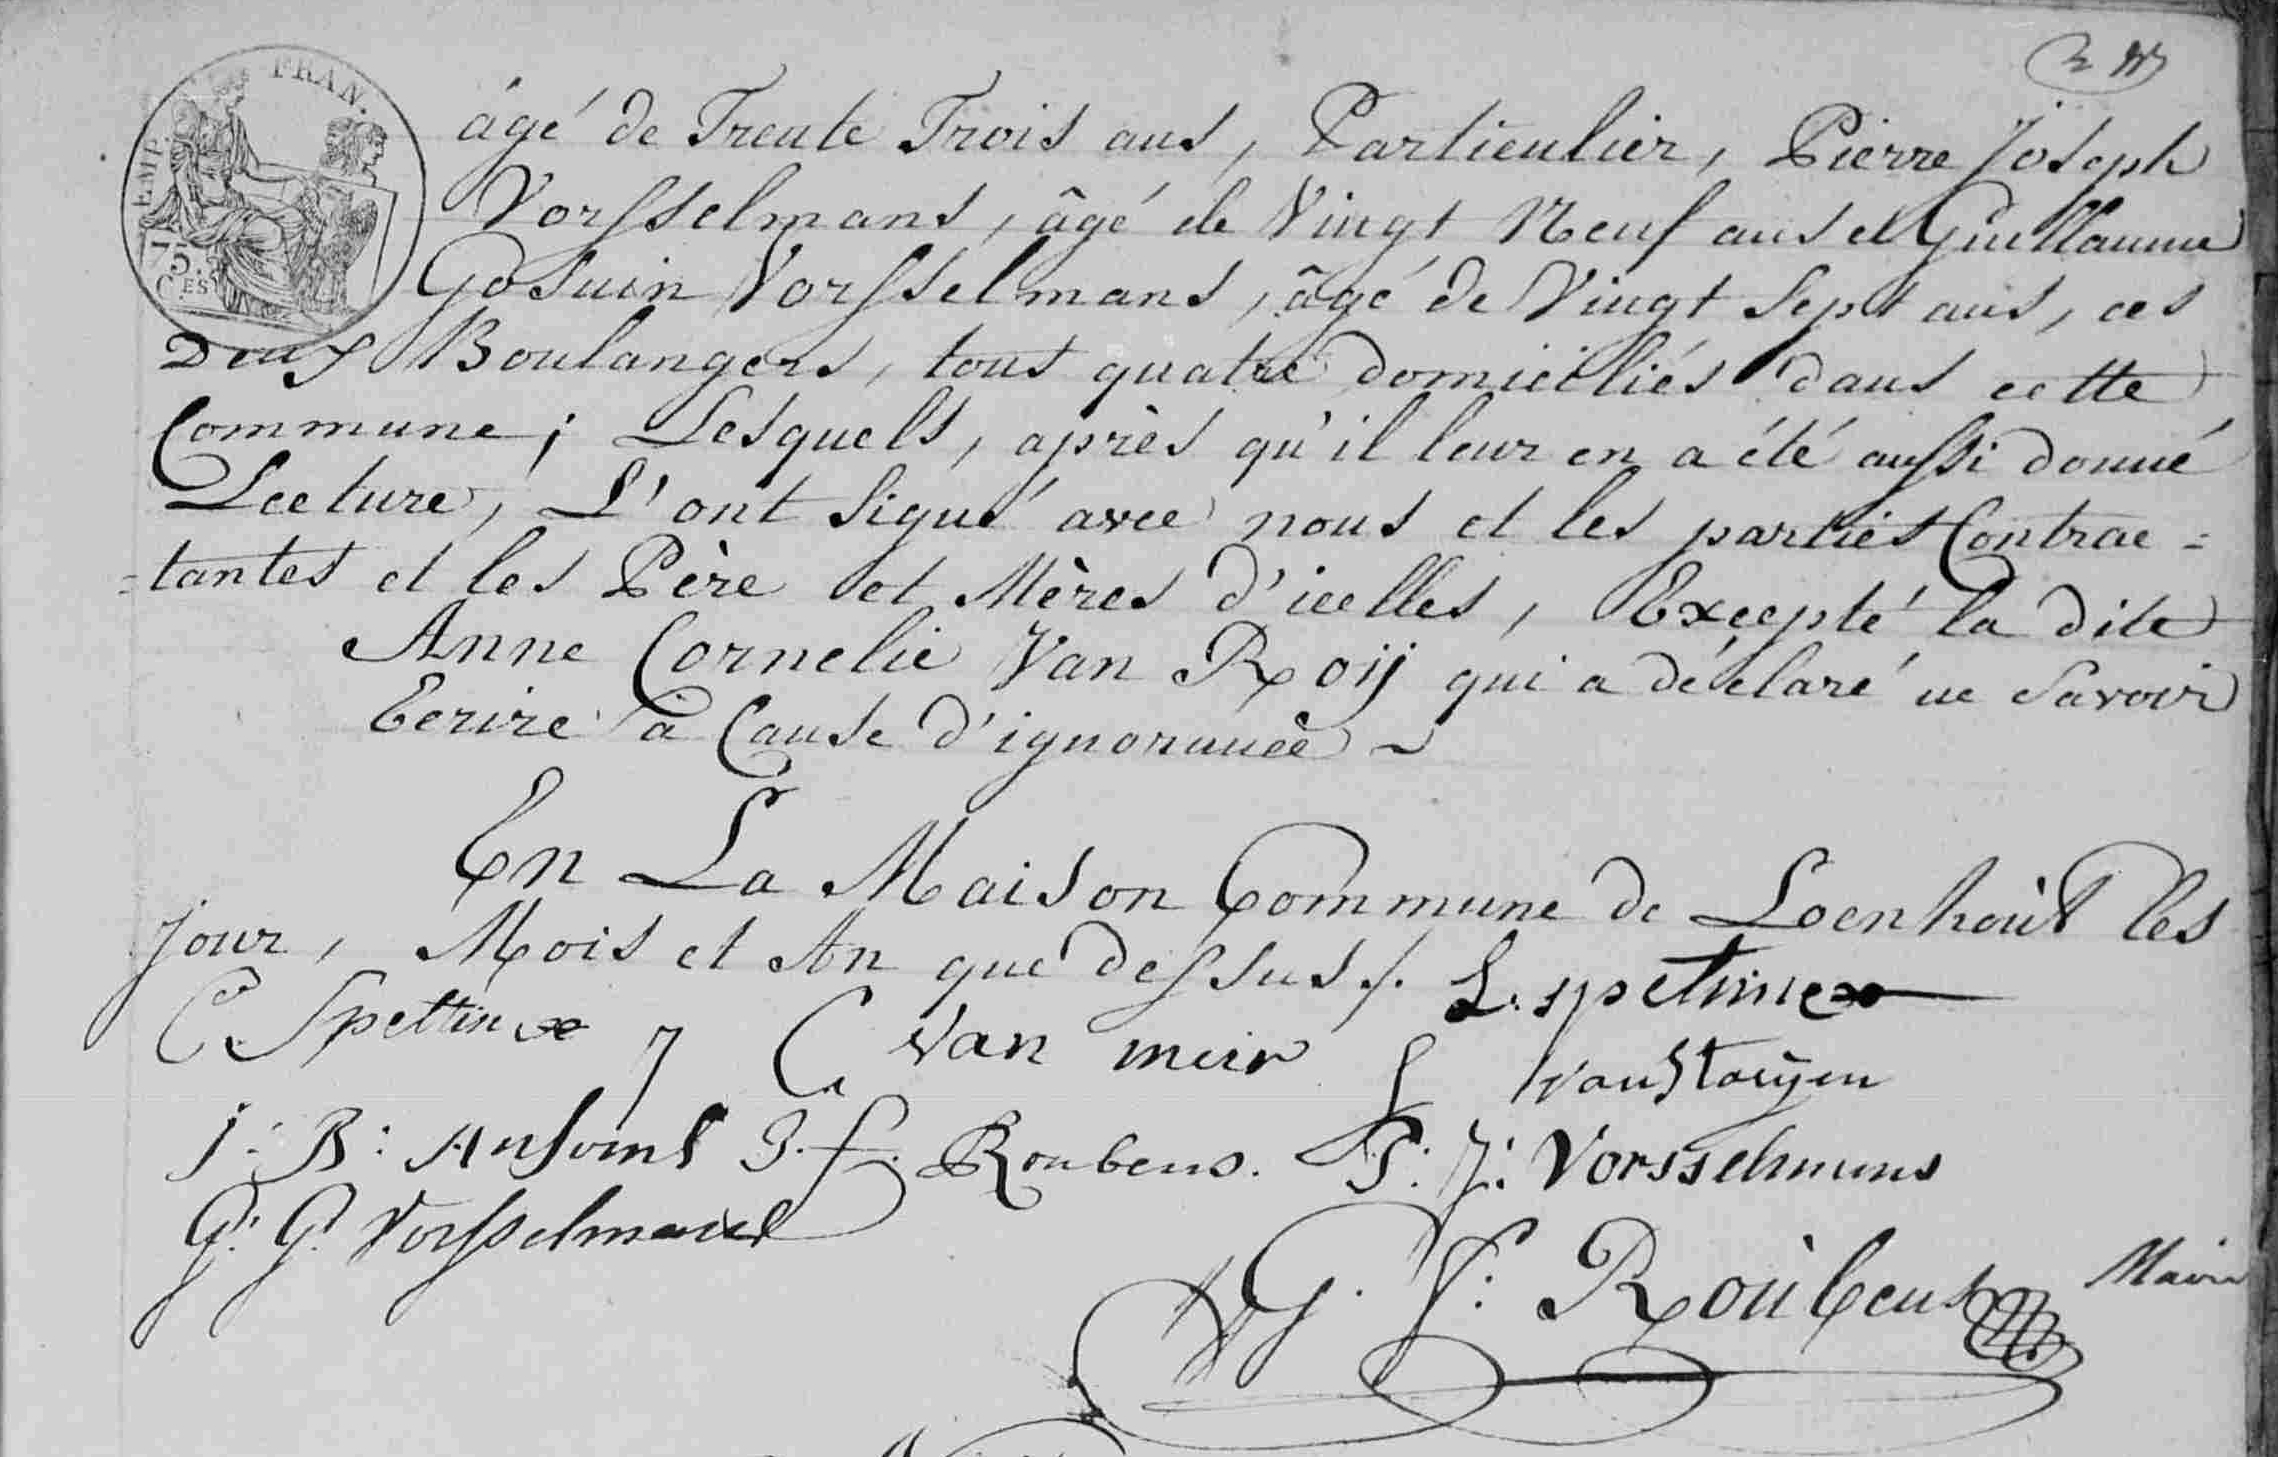 EMP. FRAN.
75.
C.ES
âgé de Trente Trois ans, Particulier, Pierre Joseph
Vorsselmans, âgé de Vingt Neuf ans et Guillaume
Gosuin Vorsselmans, âgé de Vingt Sept ans, ces
Deux Boulangers, tous quatre domiciliés dans cette
Commune; Lesquels, après qu'il leur en a été aussi donné
Lecture, L'ont signé avec nous et les parties Contrac=
=tantes et les Père et Mères d'icelles, Excepté la dite
Anne Cornelie Van Roij qui a déclaré ne Savoir
Ecrire à Cause d'ignorance
En La Maison Commune de Loenhoùt les
Jour, Mois et An que dessus /. L. spetinckx
C. Spettinckx C Van meir
J: B: Ansoms J. f. Roubens. P: J: Vorsselmans
G: G. Vorsselmans
G. F: Roùbens Maire